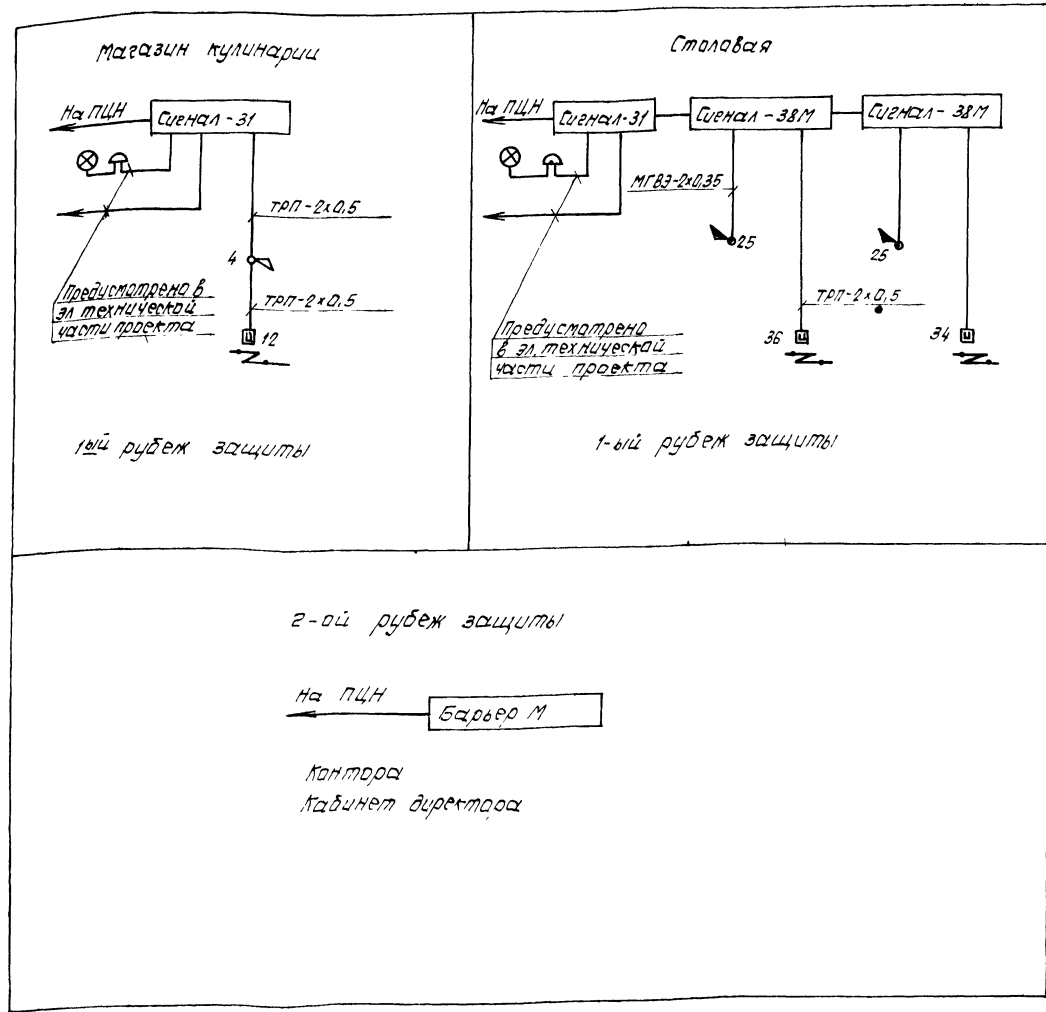 Магазин кулинарии
На ПЦН
Сигнал-31
ТРП-2×0,5
4
Предусмотрено в
эл. технической
части проекта
ТРП-2×0,5
12
1ый рубеж защиты
Столовая
На ПЦН
Сигнал-31
Сигнал-38М
Сигнал-38М
МГВЭ-2×0,35
25
25
ТРП-2×0,5
Предусмотрено
в эл. технической
части проекта
36
34
1-ый рубеж защиты
2-ой рубеж защиты
На ПЦН
Барьер М
Контора
Кабинет директора